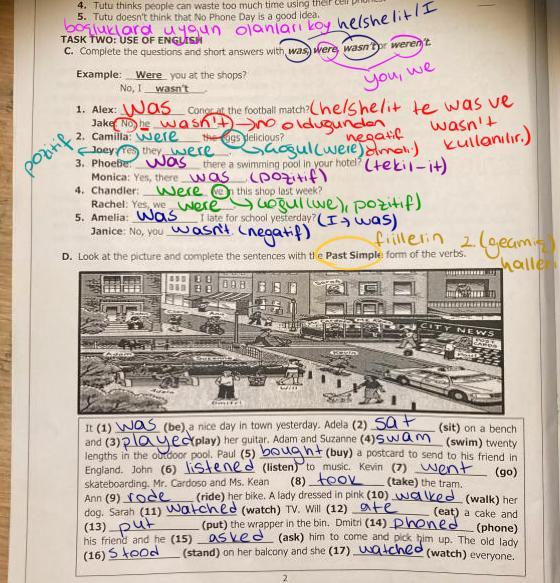 4. Tutu thinks people can waste too much time using their cell
5. Tutu doesn't think that No Phone Day is a good idea.
he/she/it/I
boşluklara uygun olanları koy
TASK TWO: USE OF ENGLISH
C. Complete the questions and short answers with was, were, wasn't or weren't.
you, we
Example: Were you at the shops?
No, I wasn't.
1. Alex: was Conor at the football match? (he/she/it te was ve
Jake: No, he wasn't → no olduğundan wasn't
negatif kullanılır.)
2. Camilla: were the eggs delicious?
pozitif
Joey: Yes, they were → çoğul (were) olmalı.)
3. Phoebe: was there a swimming pool in your hotel? (tekil-it)
Monica: Yes, there was (pozitif)
4. Chandler: were we in this shop last week?
Rachel: Yes, we were → çoğul (we), pozitif)
5. Amelia: was I late for school yesterday? (I → was)
Janice: No, you wasn't. (negatif)
fiillerin 2. (geçmiş) halleri
D. Look at the picture and complete the sentences with the Past Simple form of the verbs.
CITY NEWS
POST CARDS
Adam
Suzanne
Kevin
Paul
Adela
Dmitri
Will
It (1) was (be) a nice day in town yesterday. Adela (2) sat (sit) on a bench
and (3) played (play) her guitar. Adam and Suzanne (4) swam (swim) twenty
lengths in the outdoor pool. Paul (5) bought (buy) a postcard to send to his friend in
England. John (6) listened (listen) to music. Kevin (7) went (go)
skateboarding. Mr. Cardoso and Ms. Kean (8) took (take) the tram.
Ann (9) rode (ride) her bike. A lady dressed in pink (10) walked (walk) her
dog. Sarah (11) watched (watch) TV. Will (12) ate (eat) a cake and
(13) put (put) the wrapper in the bin. Dmitri (14) phoned (phone)
his friend and he (15) asked (ask) him to come and pick him up. The old lady
(16) stood (stand) on her balcony and she (17) watched (watch) everyone.
2